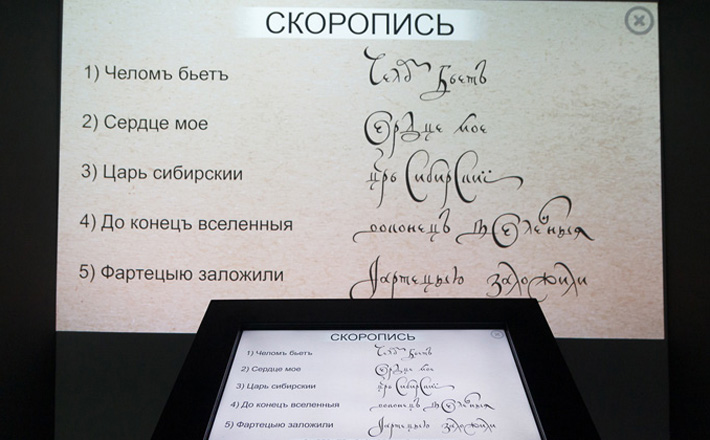 СКОРОПИСЬ
1) Челомъ бьетъ Челомъ бьетъ
2) Сердце мое Сердце мое
3) Царь сибирскии црь Сибирскиї
4) До конецъ вселенныя
5) Фартецыю заложили Фартецыю заложили
СКОРОПИСЬ
1) Челомъ бьетъ
2) Сердце мое
3) Царь сибирскии
4) До конецъ вселенныя
5) Фартецыю заложили